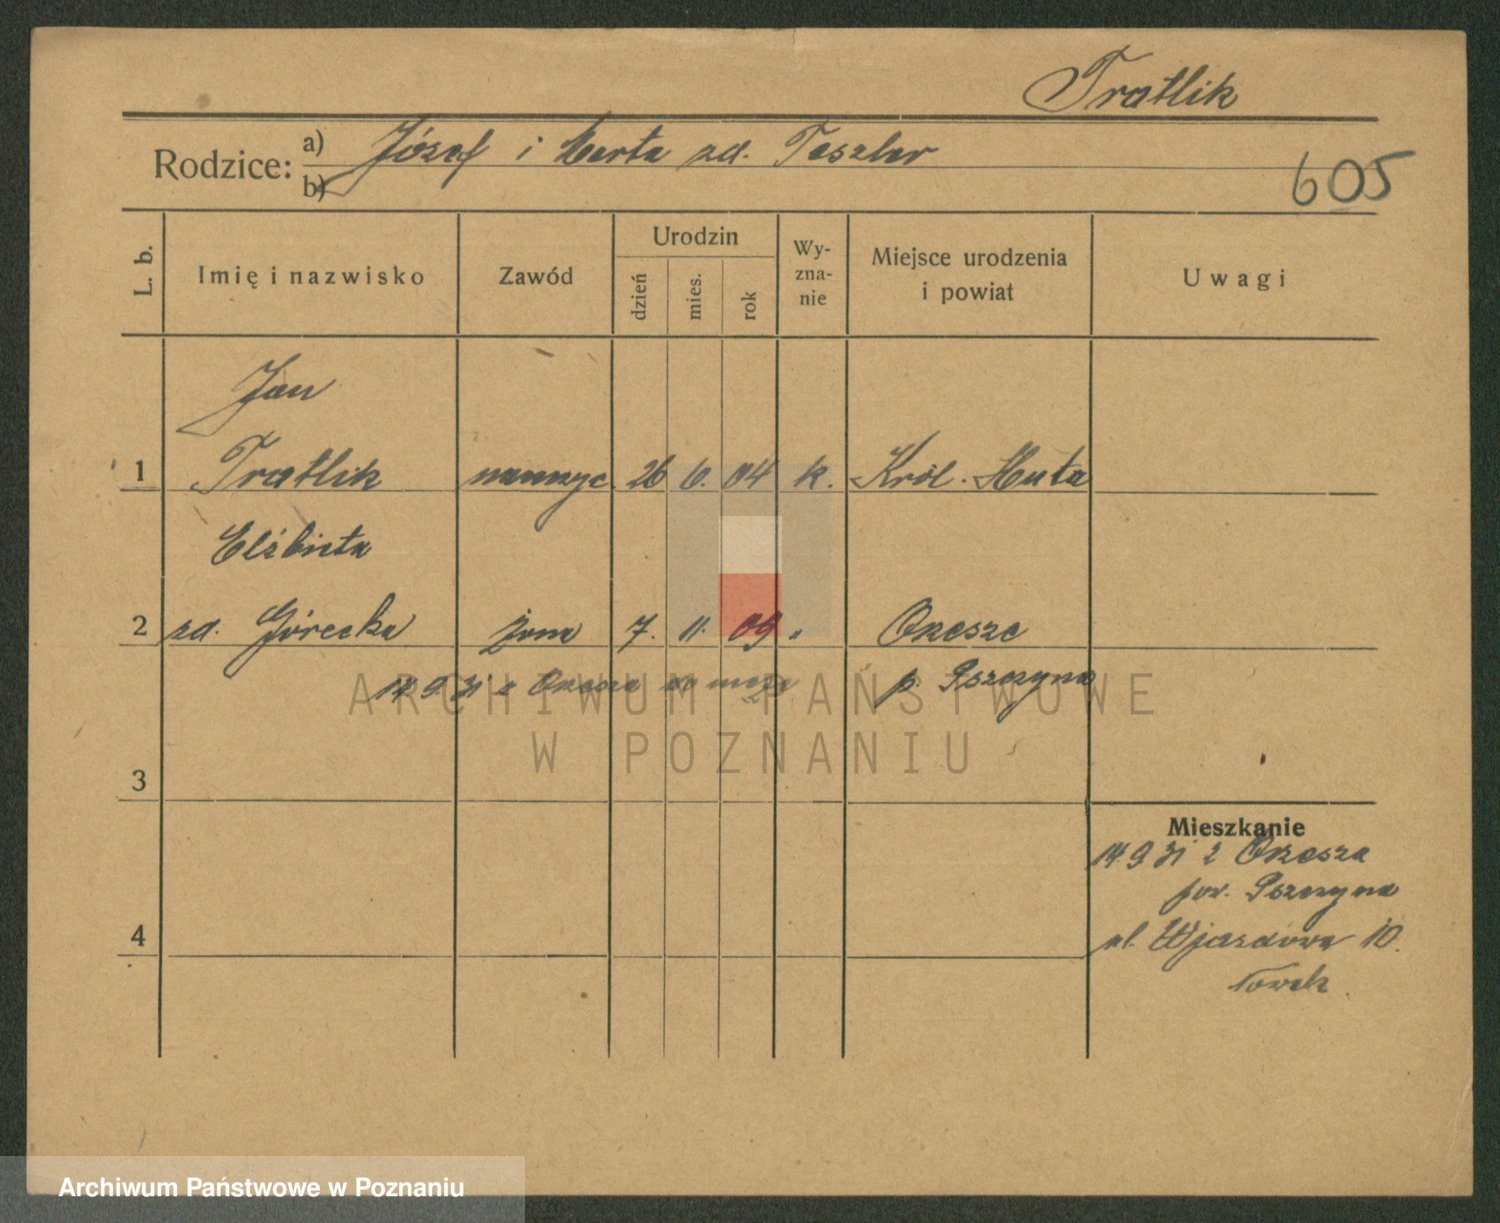 Tratlik
Rodzice: a) Józef i Marta zd. Teszler
b)
605
L. b.
Imię i nazwisko
Zawód
Urodzin
dzień
mies.
rok
Wy-
zna-
nie
Miejsce urodzenia
i powiat
Uwagi
Jan
1 Tratlik nauczyc. 26 6. 04 k. Król. Huta
Elżbieta
2 zd. Górecka żona 7. 11. 09 " Orzesze
14 9 31 z Orzesza do męża p. Pszczyna
3
4
Mieszkanie
14 9 31 z Orzesza
pow. Pszczyna
ul. Wjazdowa 10.
ARCHIWUM PAŃSTWOWE
W POZNANIU
Archiwum Państwowe w Poznaniu